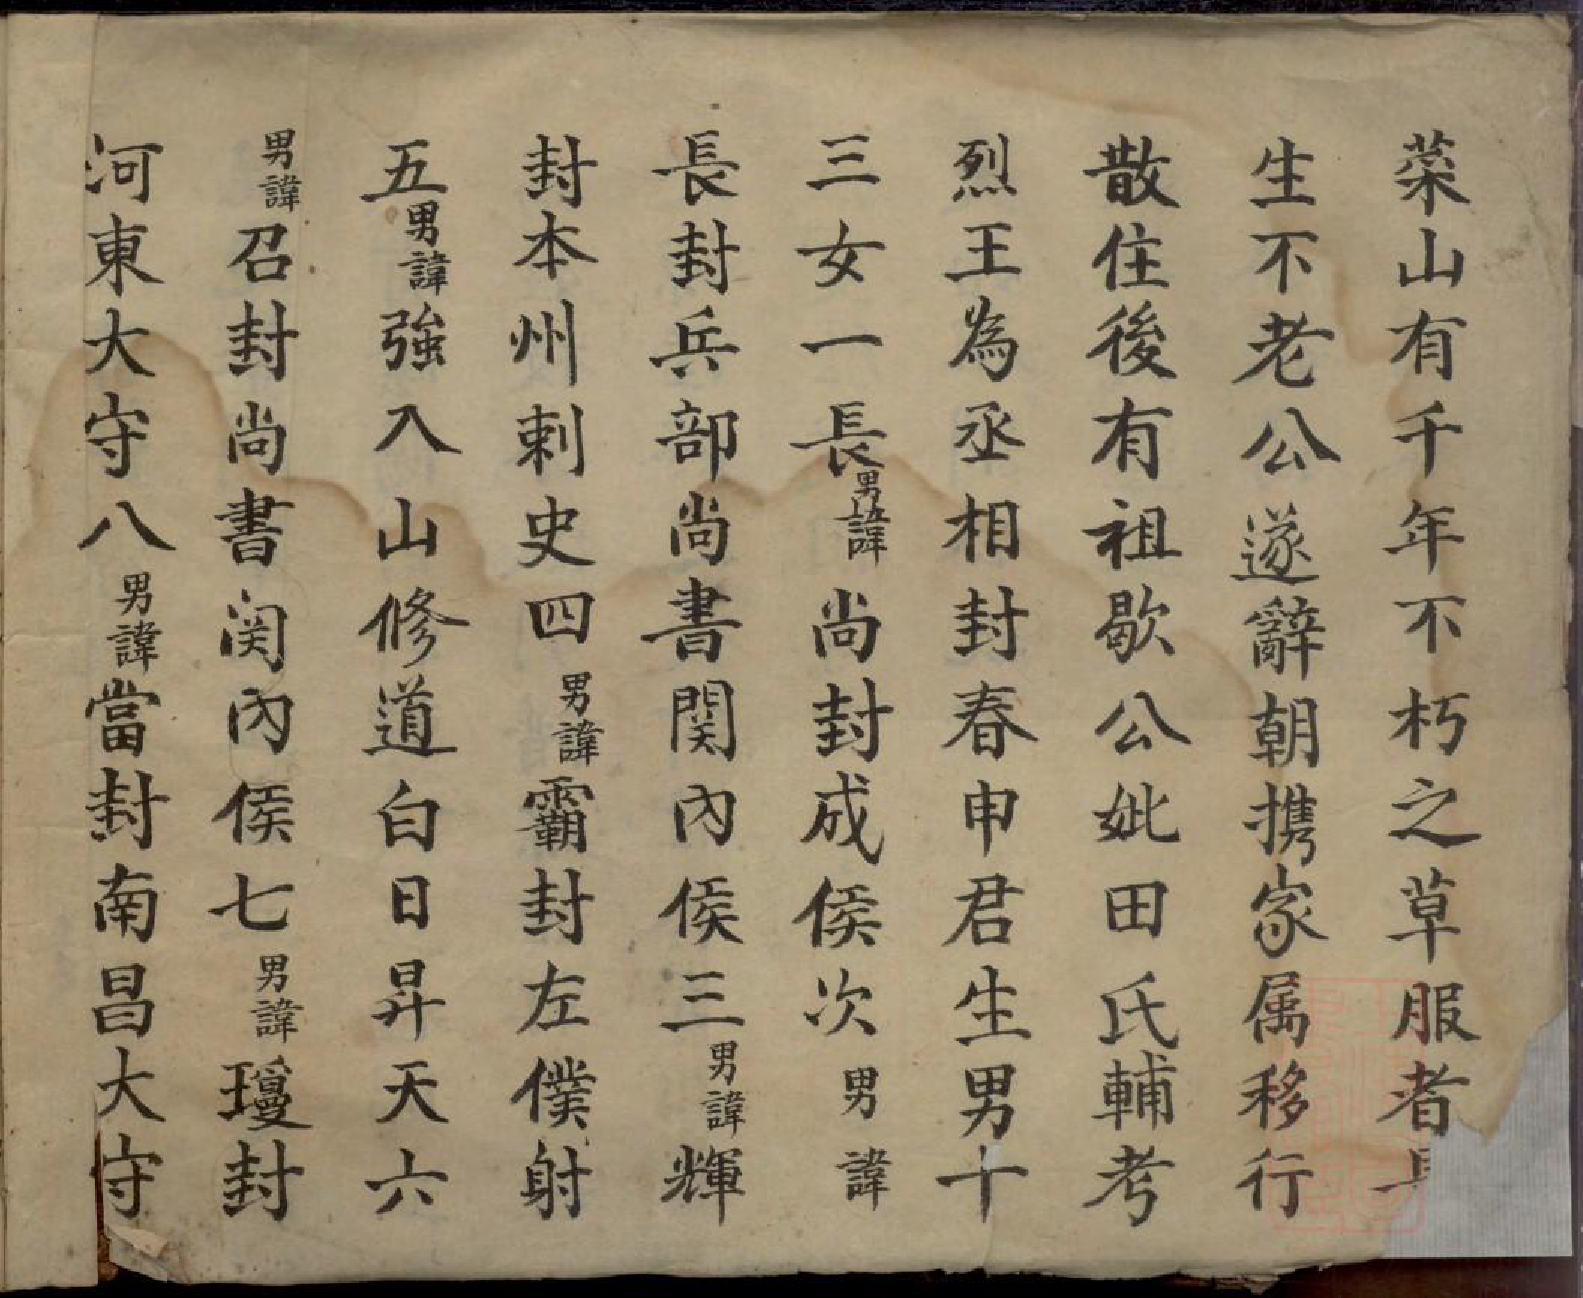 菜山有千年不朽之草服者
生不老公遂辭朝携家属移行
散住後有祖歇公妣田氏輔考
烈王為丞相封春申君生男十
三女一長男諱尚封成侯次男諱
長封兵部尚書関內侯三男諱輝
封本州刺史四男諱霸封左僕射
五男諱強入山修道白日昇天六
男諱召封尚書関內侯七男諱瓊封
河東大守八男諱當封南昌大守